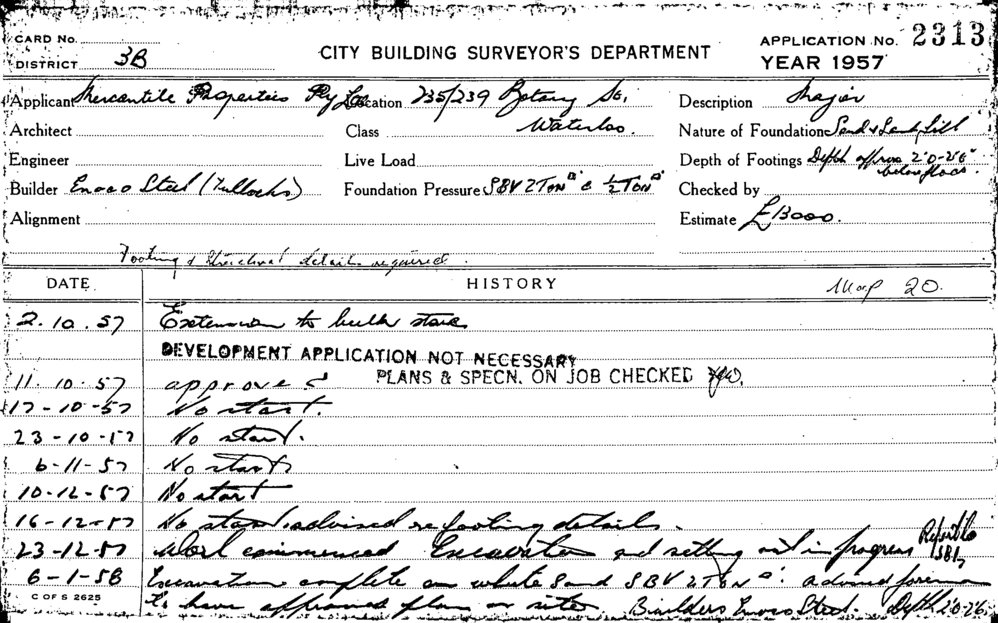 CARD No.
DISTRICT 3B
CITY BUILDING SURVEYOR'S DEPARTMENT
APPLICATION No. 2313
YEAR 1957
Applicant Mercantile Properties Pty Location 235/239 Botany St,
Waterloo.
Description Major
Architect
Class
Nature of Foundation Sand & Sand fill
Engineer
Live Load
Depth of Footings Depth approx 2'0-2'6"
below floor.
Builder Enoco Steel (Tullochs)
Foundation Pressure SBV 2 Ton □' & ½ Ton □'
Checked by
Alignment
Estimate £13000.
Footing & Structural details required.
DATE
HISTORY
Map 20.
2.10.57 Extension to bulk store
DEVELOPMENT APPLICATION NOT NECESSARY
PLANS & SPECN. ON JOB CHECKED
11.10.57 approved
17-10-57 No start.
23-10-57 No start.
6-11-57 No start
10-12-57 No start
16-12-57 No start. advised re footing details.
23-12-57 Work commenced Excavation and setting out in progress
6-1-58 Excavation complete on white sand SBV 2 Ton □'. advised foreman
to have approved plan on site. Builders Enoco Steel. Depth 2'0-2'6.
C OF S 2625